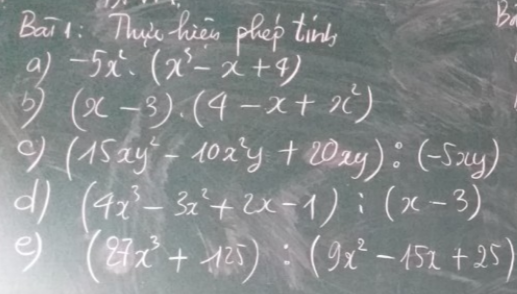 Bài 1: Thực hiện phép tính
a) -5x². (x³ - x + 4)
b) (x - 3).(4 - x + x²)
c) (15xy² - 10x²y + 20xy) : (-5xy)
d) (4x³ - 3x² + 2x - 1) : (x - 3)
e) (27x³ + 125) : (9x² - 15x + 25)